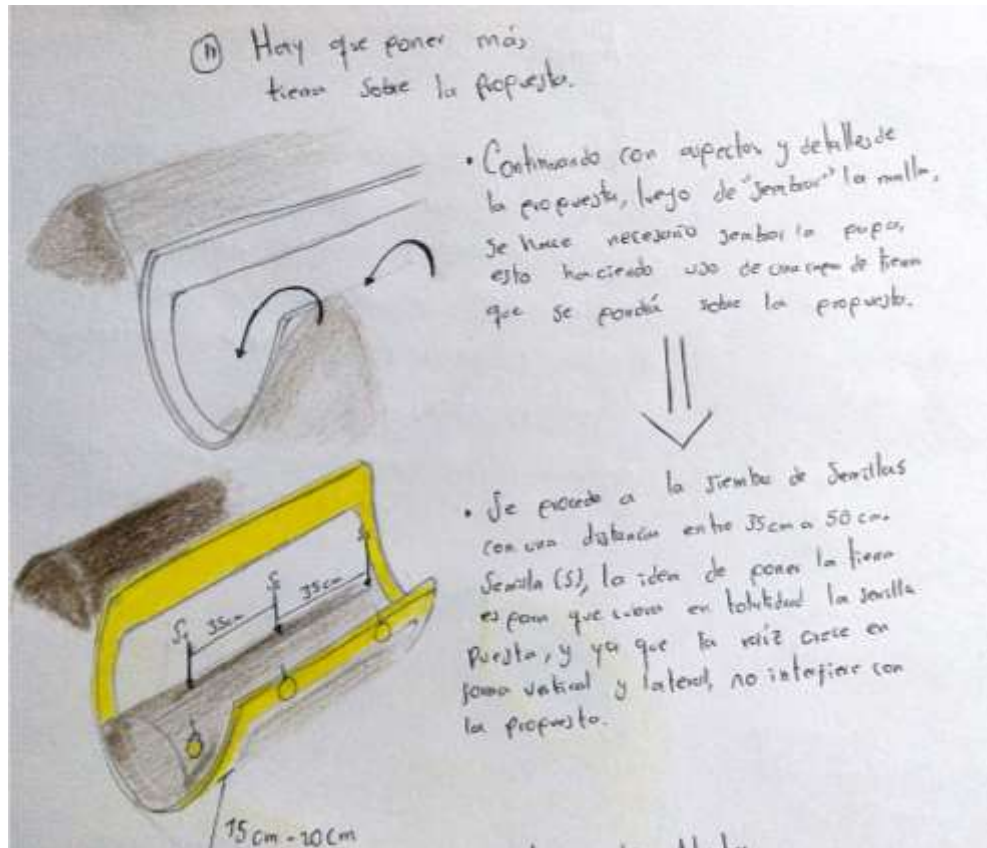 11 Hay que poner más
tierra sobre la propuesta.
• Continuando con aspectos y detalles de
la propuesta, luego de "sembrar" la malla,
se hace necesario sembrar la papa,
esto haciendo uso de una capa de tierra
que se pondrá sobre la propuesta.
• Se procede a la siembra de semillas
con una distancia entre 35cm a 50 cm.
Semilla (S), la idea de poner la tierra
es para que cubra en totalidad la semilla
puesta, y ya que la raíz crece en
forma vertical y lateral, no interfiere con
la propuesta.
S
35cm
S
35cm
S
15 cm - 20 cm